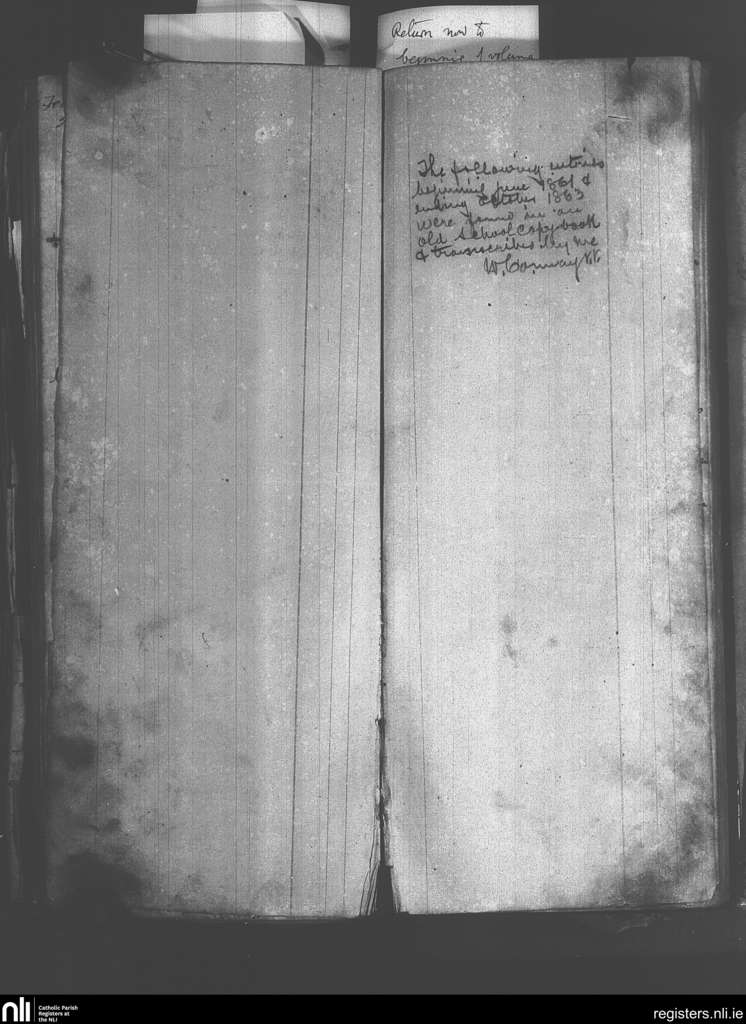 Return now to
beginning of volume
The following entries
beginning June 1861 &
ending October 1863
were found in an
old school copy book
& transcribed by me
W. Conway
nli
Catholic Parish
Registers at
the NLI
registers.nli.ie